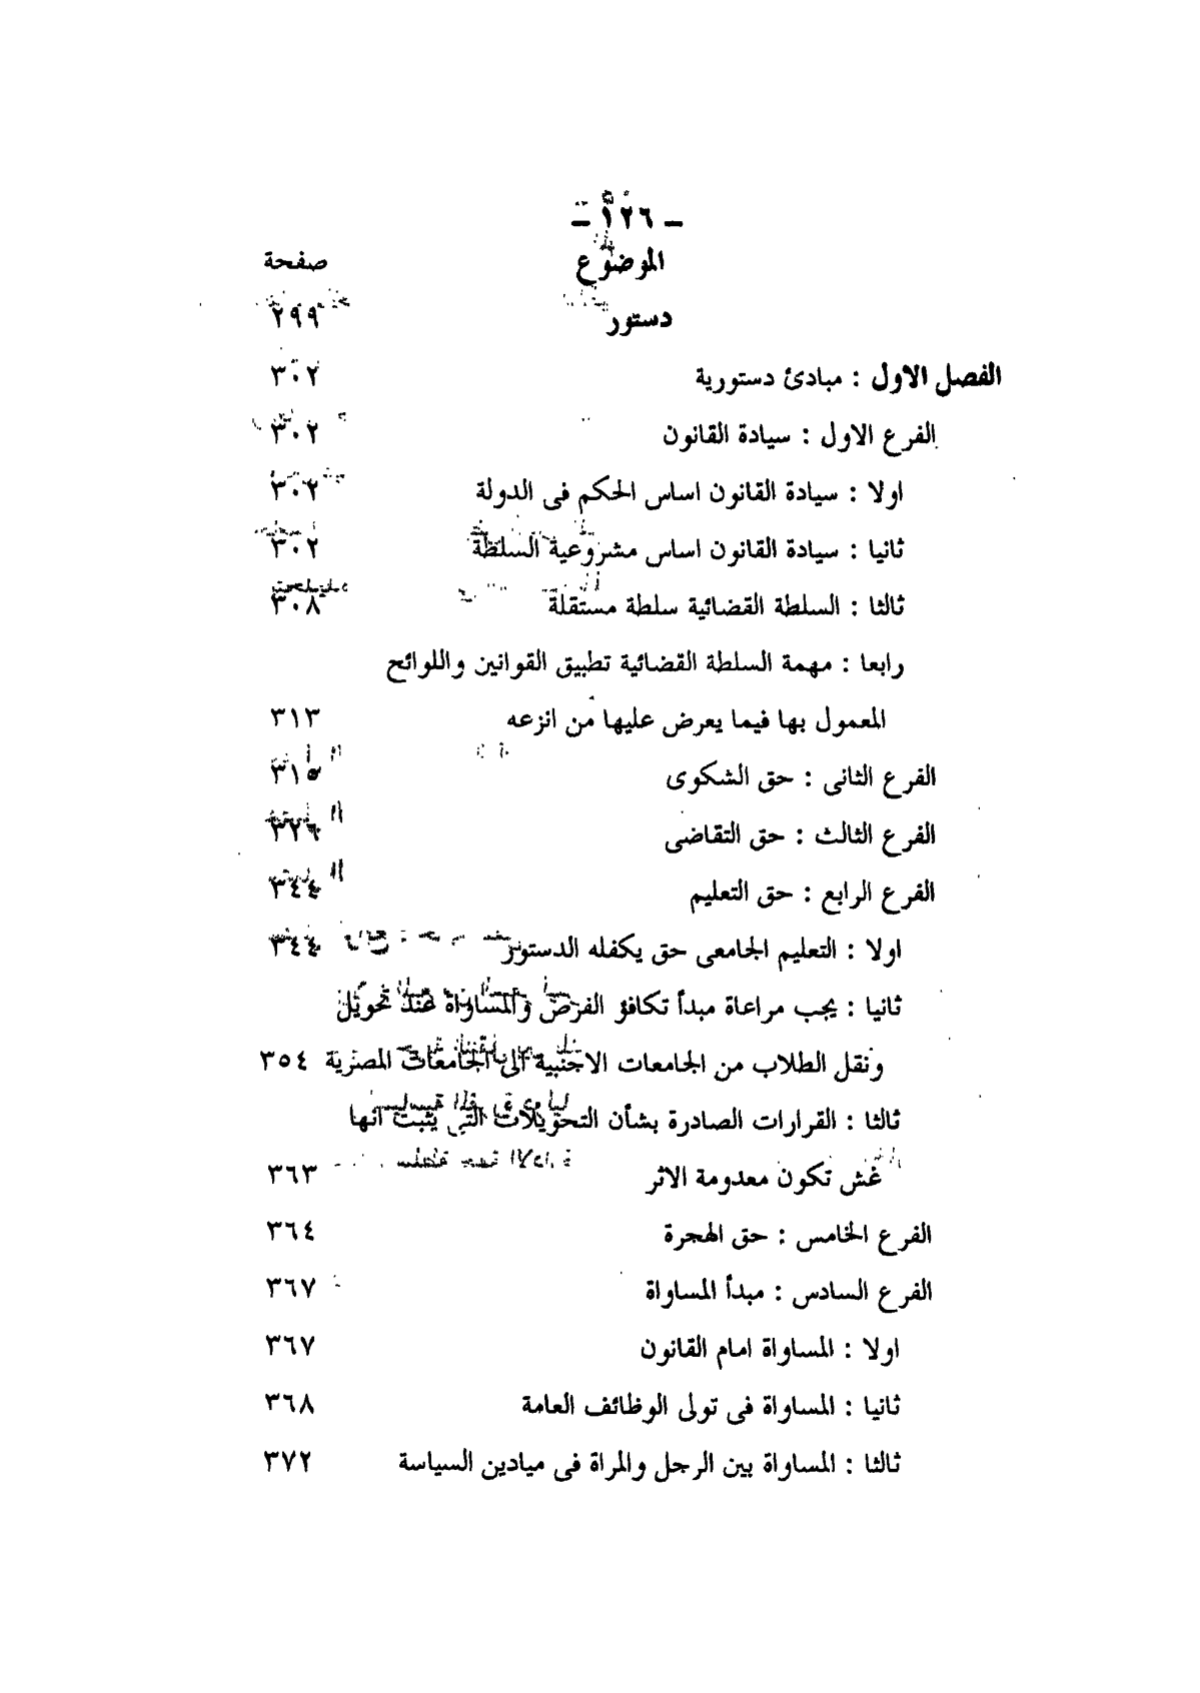 ـ ١٢٦ ـ
الموضوع صفحة
دستور ٢٩٩
الفصل الاول : مبادئ دستورية ٣٠٢
الفرع الاول : سيادة القانون ٣٠٢
اولا : سيادة القانون اساس الحكم فى الدولة ٣٠٢
ثانيا : سيادة القانون اساس مشروعية السلطة ٣٠٢
ثالثا : السلطة القضائية سلطة مستقلة ٣٠٨
رابعا : مهمة السلطة القضائية تطبيق القوانين واللوائح
المعمول بها فيما يعرض عليها من انزعه ٣١٣
الفرع الثانى : حق الشكوى ٣١٥
الفرع الثالث : حق التقاضى ٣٢٦
الفرع الرابع : حق التعليم ٣٤٤
اولا : التعليم الجامعى حق يكفله الدستور ٣٤٤
ثانيا : يجب مراعاة مبدأ تكافؤ الفرص والمساواة عند تحويل
ونقل الطلاب من الجامعات الاجنبية الى الجامعات المصرية ٣٥٤
ثالثا : القرارات الصادرة بشأن التحويلات التى يثبت انها
غش تكون معدومة الاثر ٣٦٣
الفرع الخامس : حق الهجرة ٣٦٤
الفرع السادس : مبدأ المساواة ٣٦٧
اولا : المساواة امام القانون ٣٦٧
ثانيا : المساواة فى تولى الوظائف العامة ٣٦٨
ثالثا : المساواة بين الرجل والمراة فى ميادين السياسة ٣٧٢